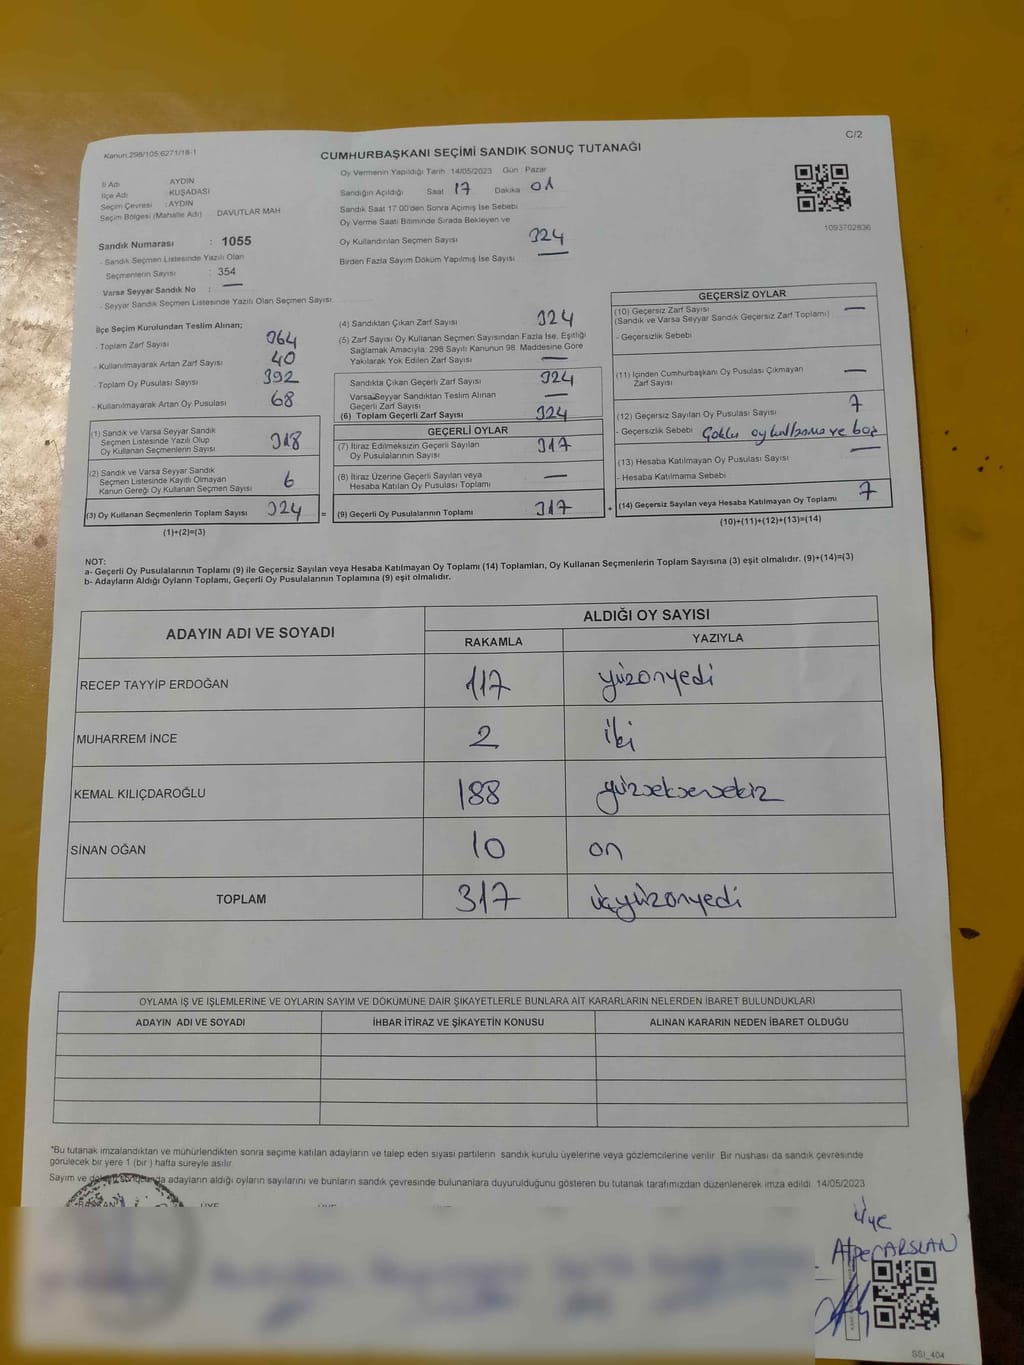 Kanun:298/105;6271/18-1
C/2
CUMHURBAŞKANI SEÇİMİ SANDIK SONUÇ TUTANAĞI
İl Adı : AYDIN
İlçe Adı : KUŞADASI
Seçim Çevresi : AYDIN
Seçim Bölgesi (Mahalle Adı) DAVUTLAR MAH
Sandık Numarası : 1055
- Sandık Seçmen Listesinde Yazılı Olan
Seçmenlerin Sayısı : 354
Varsa Seyyar Sandık No : —
- Seyyar Sandık Seçmen Listesinde Yazılı Olan Seçmen Sayısı:
Oy Vermenin Yapıldığı Tarih : 14/05/2023 Gün : Pazar
Sandığın Açıldığı Saat 17 Dakika 01
Sandık Saat 17:00'den Sonra Açımış İse Sebebi
Oy Verme Saati Bitiminde Sırada Bekleyen ve
Oy Kullandırılan Seçmen Sayısı 324
Birden Fazla Sayım Döküm Yapılmış İse Sayısı —
1093702836
İlçe Seçim Kurulundan Teslim Alınan;
- Toplam Zarf Sayısı 364
- Kullanılmayarak Artan Zarf Sayısı 40
- Toplam Oy Pusulası Sayısı 392
- Kullanılmayarak Artan Oy Pusulası 68
(1) Sandık ve Varsa Seyyar Sandık
Seçmen Listesinde Yazılı Olup
Oy Kullanan Seçmenlerin Sayısı 318
(2) Sandık ve Varsa Seyyar Sandık
Seçmen Listesinde Kayıtlı Olmayan
Kanun Gereği Oy Kullanan Seçmen Sayısı 6
(3) Oy Kullanan Seçmenlerin Toplam Sayısı 324 =
(1)+(2)=(3)
(4) Sandıktan Çıkan Zarf Sayısı 324
(5) Zarf Sayısı Oy Kullanan Seçmen Sayısından Fazla İse, Eşitliği
Sağlamak Amacıyla, 298 Sayılı Kanunun 98. Maddesine Göre
Yakılarak Yok Edilen Zarf Sayısı —
Sandıkta Çıkan Geçerli Zarf Sayısı 324
Varsa Seyyar Sandıktan Teslim Alınan
Geçerli Zarf Sayısı —
(6) Toplam Geçerli Zarf Sayısı 324
GEÇERLİ OYLAR
(7) İtiraz Edilmeksizin Geçerli Sayılan
Oy Pusulalarının Sayısı 317
(8) İtiraz Üzerine Geçerli Sayılan veya
Hesaba Katılan Oy Pusulası Toplamı —
(9) Geçerli Oy Pusulalarının Toplamı 317 +
GEÇERSİZ OYLAR
(10) Geçersiz Zarf Sayısı —
(Sandık ve Varsa Seyyar Sandık Geçersiz Zarf Toplamı)
- Geçersizlik Sebebi
(11) İçinden Cumhurbaşkanı Oy Pusulası Çıkmayan
Zarf Sayısı —
(12) Geçersiz Sayılan Oy Pusulası Sayısı 7
- Geçersizlik Sebebi Çoklu oy kullanma ve boş
(13) Hesaba Katılmayan Oy Pusulası Sayısı —
- Hesaba Katılmama Sebebi
(14) Geçersiz Sayılan veya Hesaba Katılmayan Oy Toplamı 7
(10)+(11)+(12)+(13)=(14)
NOT:
a- Geçerli Oy Pusulalarının Toplamı (9) ile Geçersiz Sayılan veya Hesaba Katılmayan Oy Toplamı (14) Toplamları, Oy Kullanan Seçmenlerin Toplam Sayısına (3) eşit olmalıdır. (9)+(14)=(3)
b- Adayların Aldığı Oyların Toplamı, Geçerli Oy Pusulalarının Toplamına (9) eşit olmalıdır.
ADAYIN ADI VE SOYADI ALDIĞI OY SAYISI
RAKAMLA YAZIYLA
RECEP TAYYİP ERDOĞAN 117 yüzonyedi
MUHARREM İNCE 2 iki
KEMAL KILIÇDAROĞLU 188 yüzseksensekiz
SİNAN OĞAN 10 on
TOPLAM 317 üçyüzonyedi
OYLAMA İŞ VE İŞLEMLERİNE VE OYLARIN SAYIM VE DÖKÜMÜNE DAİR ŞİKAYETLERLE BUNLARA AİT KARARLARIN NELERDEN İBARET BULUNDUKLARI
ADAYIN ADI VE SOYADI İHBAR İTİRAZ VE ŞİKAYETİN KONUSU ALINAN KARARIN NEDEN İBARET OLDUĞU
*Bu tutanak imzalandıktan ve mühürlendikten sonra seçime katılan adayların ve talep eden siyasi partilerin sandık kurulu üyelerine veya gözlemcilerine verilir. Bir nüshası da sandık çevresinde
görülecek bir yere 1 (bir ) hafta süreyle asılır.
Sayım ve döküm sonucunda adayların aldığı oyların sayılarını ve bunların sandık çevresinde bulunanlara duyurulduğunu gösteren bu tutanak tarafımızdan düzenlenerek imza edildi. 14/05/2023
BAŞKAN ÜYE
Üye
Alper ARSLAN
SSI_404